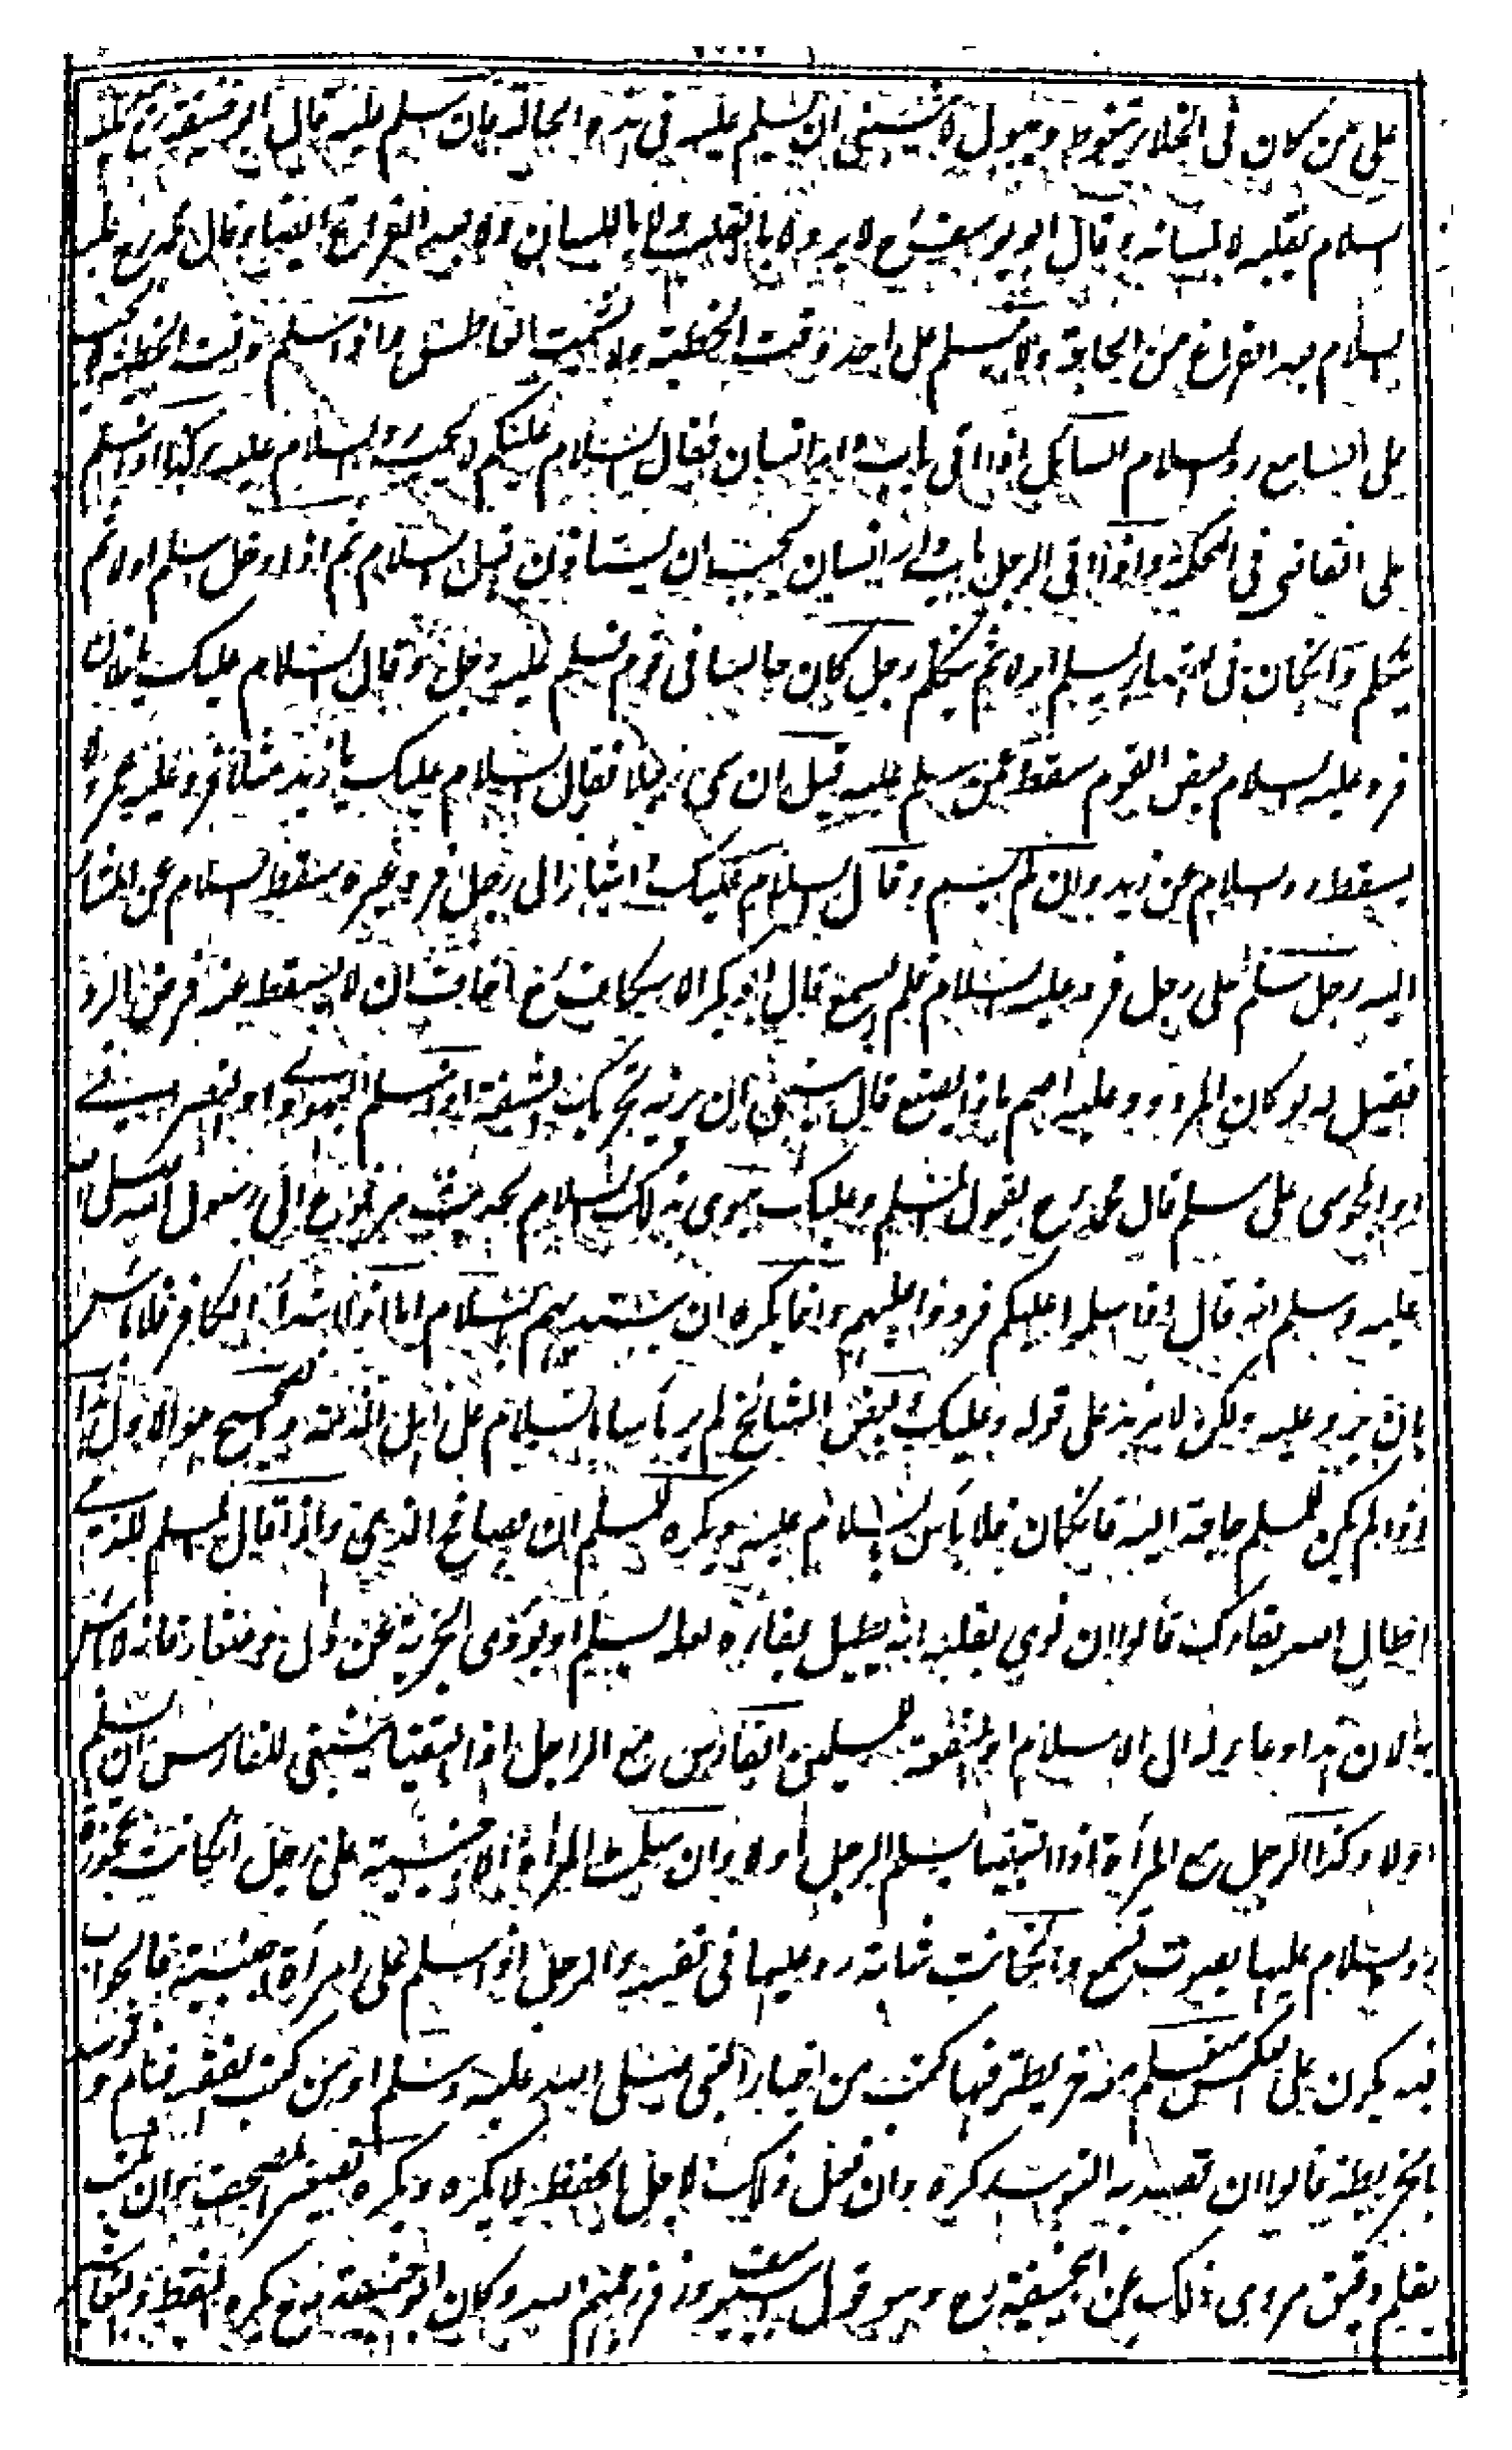 على من كان فى الخلاء يتغوط ويبول لا ينبغى ان يسلم عليه فى هذه الحالة فان سلم عليه قال ابو حنيفة رح يرد عليه
السلام بقلبه لا بلسانه وقال ابو يوسف رح لا يرد لا بالقلب ولا باللسان ولا بعد الفراغ ايضا وقال محمد رح يرد
السلام بعد الفراغ من الحاجة ولا يسلم على احد وقت الخطبة ولا يشمت العاطس فاذا سلم وقت الخطبة لا يجب
على السامع رد السلام السائل اذا اتى باب دار انسان فقال السلام عليكم لا يجب رد السلام عليه وكذا اذا سلم
على القاضى فى المحكمة واذا اتى الرجل باب دار انسان يجب ان يستاذن قبل السلام ثم اذا دخل سلم اولا ثم
يتكلم وانكان فى يسلم اولا ثم يتكلم رجل كان جالسا فى قوم فسلم عليه رجل وقال السلام عليك يا فلان
فرد عليه السلام بعض القوم سقط عمن سلم عليه قيل ان سمى رجلا فقال السلام عليك يا زيد مثلا فرد عليه عمرو لا
يسقط رد السلام عن زيد وان لم يسم وقال السلام عليك و اشار الى رجل فرد غيره سقط السلام عن المشار
اليه رجل سلم على رجل فرد عليه السلام فلم يسمع قال ابو بكر الاسكاف رح اخاف ان لا يسقط عنه فرض الرد
فقيل له لو كان المردود عليه اصم ماذا يصنع قال ينبغى ان يريه تحريك الشفة اذا سلم اليهودى او النصرانى
او المجوسى على مسلم قال محمد رح يقول المسلم وعليك ينوى بذلك السلام بحديث مرفوع الى رسول الله صلى الله
عليه وسلم انه قال اذا سلموا عليكم فردوا عليهم وانما يكره ان يبتديهم بالسلام اما اذا ابتدأ الكافر فلا باس
بان يرد عليه ولكن لا يزيد على قوله وعليك وبعض المشايخ لم ير بأسا بالسلام على اهل الذمة والصحيح هو الاول هذا
اذا لم يكن للمسلم حاجة اليه فانكان فلا بأس بالسلام عليه ويكره للمسلم ان يصافح الذمى واذا قال المسلم للذمى
اطال الله بقاءك قالوا ان نوى بقلبه انه يطيل بقاءه لعله يسلم او يؤدى الجزية عن ذل وصغار فانه لا باس
به لان هذا دعاء له الى الاسلام او لمنفعة المسلمين الفارس مع الراجل اذا التقيا ينبغى للفارس ان يسلم
اولا وكذا الرجل مع المرأة اذا التقيا يسلم الرجل اولا وان سلمت المرأة الاجنبية على رجل انكانت عجوزا
رد السلام عليها بصوت يسمع وانكانت شابة رد عليها فى نفسه والرجل اذا سلم على امرأة اجنبية فالجواب
فيه يكون على العكس مسلم معه خريطة فيها كتب من اخبار النبى صلى الله عليه وسلم او من كتب الفقه فنام وتوسد
بالخريطة قالوا ان قصد به التوسد كره وان فعل ذلك لاجل الحفظ لا يكره ويكره تصغير المصحف وان يكتب
بقلم دقيق مروى ذلك عن ابى حنيفة رح وهو قول ابى يوسف وزفر رحمهم الله وكان ابو حنيفة رح يكره النقط والتعاشير